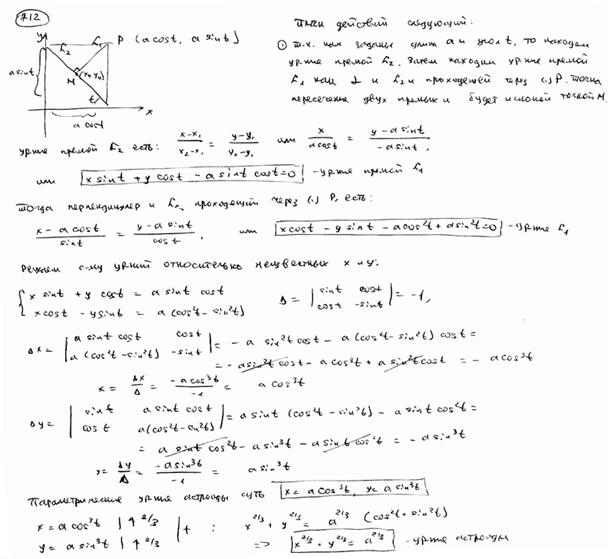 712
y
L₂
L₁
P (a cos t, a sin t)
M (x₀, y₀)
a sin t
t
x
a cos t
План действий следующий:
① т.к. нам заданы длина a и угол t, то находим
ур-ие прямой L₂. Затем находим ур-ие прямой
L₁ как ⊥ и L₂ и проходящей через (·) P. Точка
пересечения двух прямых и будет искомой точкой M.
ур-ие прямой L₂ есть: (x-x₁)/(x₂-x₁) = (y-y₁)/(y₂-y₁) или x/(a cos t) = (y - a sin t)/(-a sin t),
или x sin t + y cos t - a sin t cos t = 0 - ур-ие прямой L₁
Тогда перпендикуляр к L₂, проходящий через (·) P, есть:
(x - a cos t)/(sin t) = (y - a sin t)/(cos t), или x cos t - y sin t - a cos²t + a sin²t = 0 - ур-ие L₁
Решаем с-му ур-ний относительно неизвестных x и y:
{ x sin t + y cos t = a sin t cos t
x cos t - y sin t = a (cos²t - sin²t)
Δ = | sin t cos t
cos t -sin t | = -1,
Δx = | a sin t cos t cos t
a (cos²t - sin²t) -sin t | = -a sin²t cos t - a (cos²t - sin²t) cos t =
= -a sin²t cos t - a cos³t + a sin²t cos t = -a cos³t
x = Δx/Δ = (-a cos³t)/(-1) = a cos³t
Δy = | sin t a sin t cos t
cos t a (cos²t - sin²t) | = a sin t (cos²t - sin²t) - a sin t cos²t =
= a sin t cos²t - a sin³t - a sin t cos²t = -a sin³t
y = Δy/Δ = (-a sin³t)/(-1) = a sin³t
Параметрические ур-ие астроиды суть x = a cos³t, y = a sin³t
x = a cos³t | ↑ 2/3
y = a sin³t | ↑ 2/3 | + : x^2/3 + y^2/3 = a^2/3 (cos²t + sin²t)
=> x^2/3 + y^2/3 = a^2/3 - ур-ие астроиды